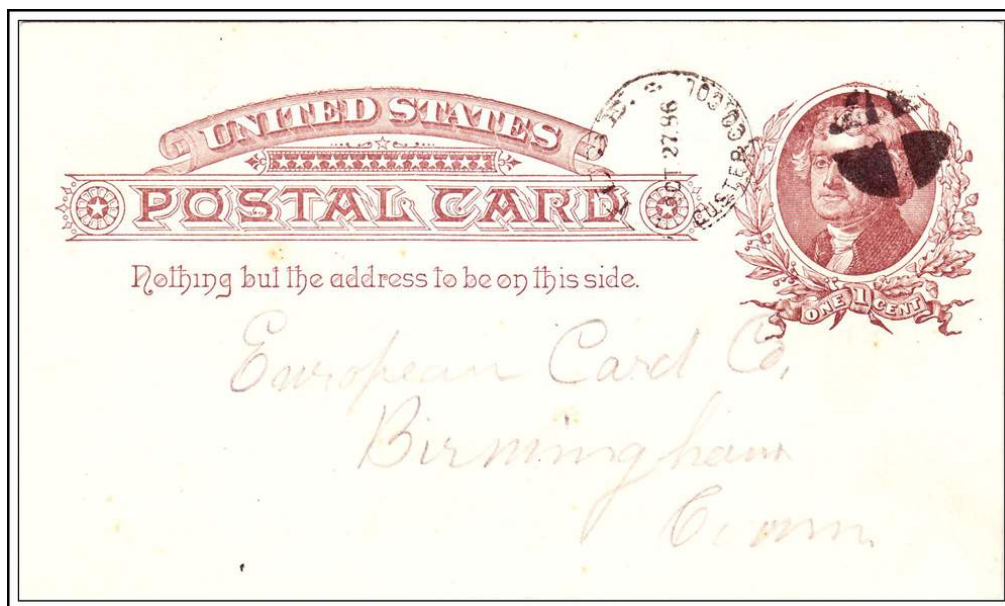 UNITED STATES
POSTAL CARD
Nothing but the address to be on this side.
27 86
CUSTER CO. COL.
ONE 1 CENT
European Card Co,
Birmingham
Conn.